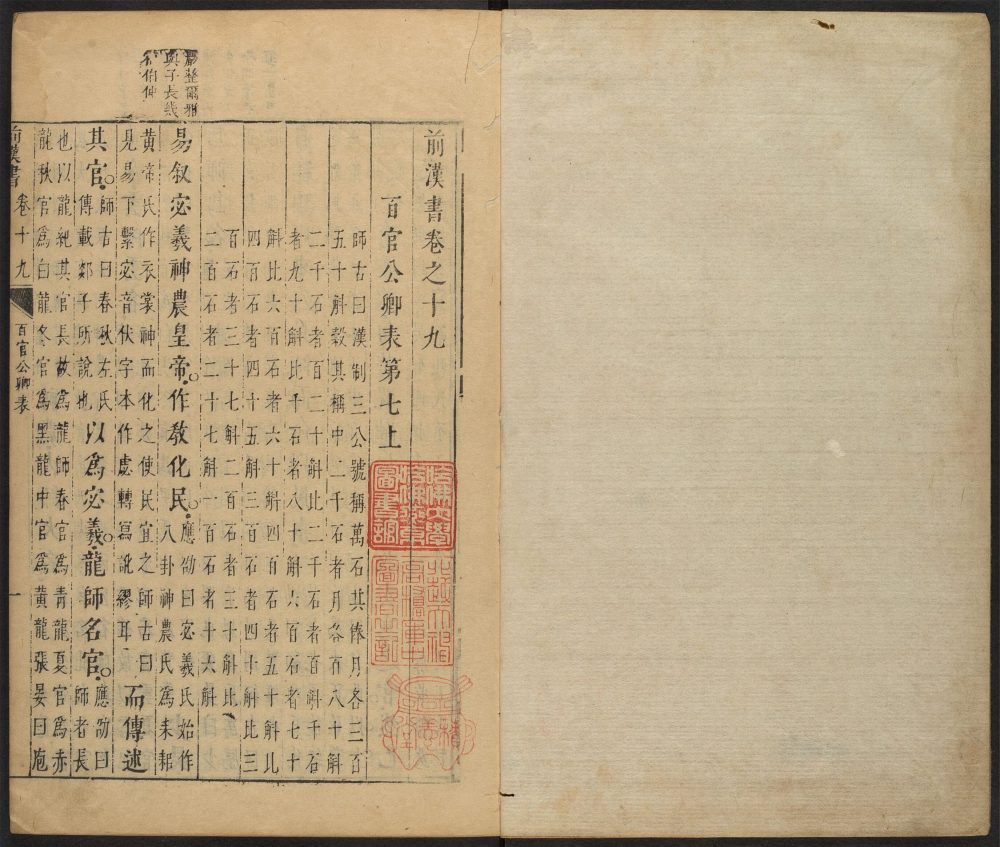 前漢書卷之十九
百官公卿表第七上
師古曰漢制三公號稱萬石其俸月各三百
五十斛穀其稱中二千石者月各百八十斛
二千石者百二十斛比二千石者百斛千石
者九十斛比千石者八十斛六百石者七十
斛比六百石者六十斛四百石者五十斛比
四百石者四十五斛三百石者四十斛比三
百石者三十七斛二百石者三十斛比
二百石者二十七斛一百石者十六斛
嚴整爾雅
與子長幾
伯仲
易叙宓羲神農皇帝作教化民。應劭曰宓羲氏始作
八卦神農氏爲耒耜
黃帝氏作衣裳神而化之使民宜之師古曰
見易下繫宓音伏字本作虙轉寫訛繆耳而傳述
其官。師古曰春秋左氏
傳載郯子所說也以爲宓羲。龍師名官。應劭曰
師者長
也以龍紀其官長故爲龍師春官爲青龍夏官爲赤
龍秋官爲白龍冬官爲黑龍中官爲黃龍張晏曰庖
前漢書 卷十九 百官公卿表 一
圖書館